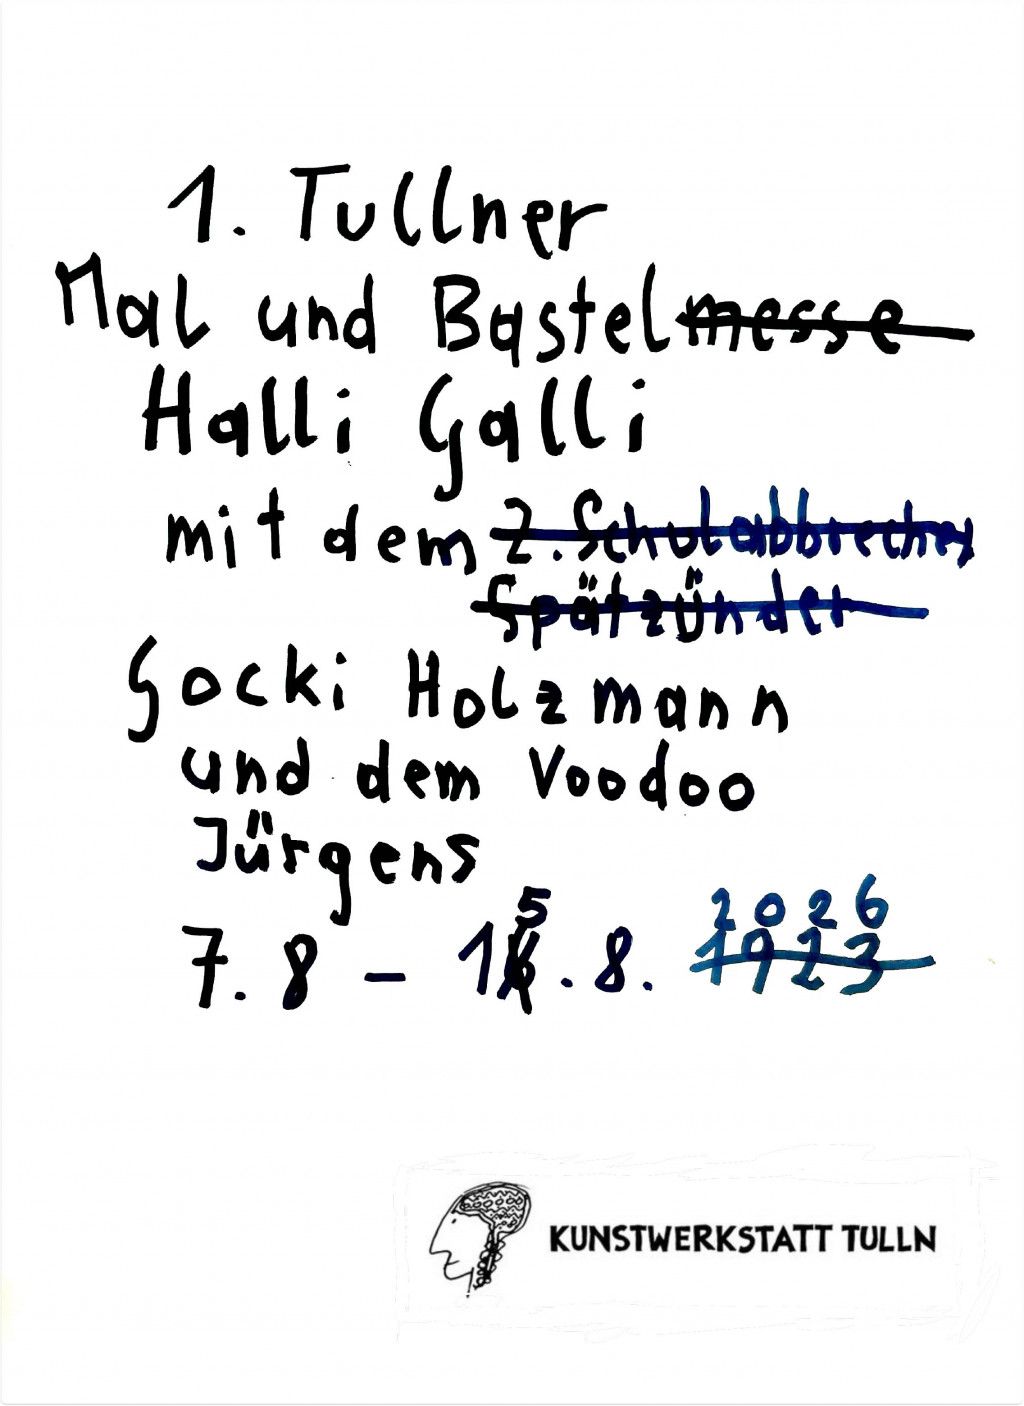 1. Tullner
Mal und Bastelmesse
Halli Galli
mit dem 2. Schulabbrecher
Spätzünder
Gocki Holzmann
und dem Voodoo
Jürgens
5 2026
7. 8 – 16. 8. 1923
KUNSTWERKSTATT TULLN